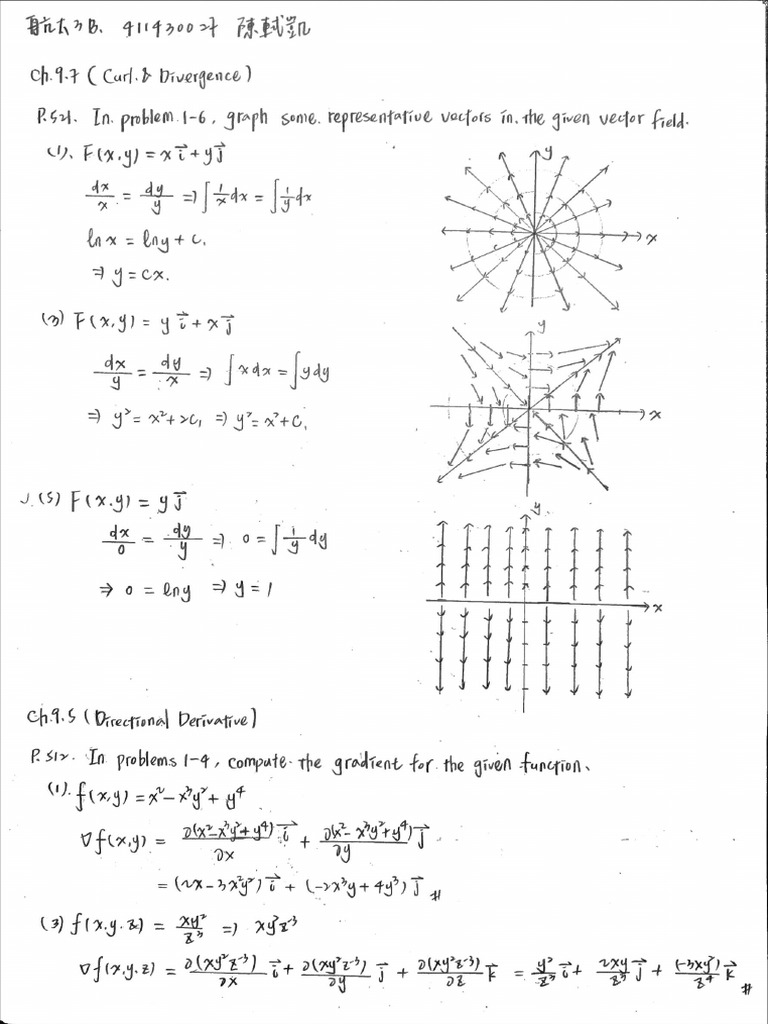 航太3B. 411430027 陳軾凱
Ch.9.7 (Curl & Divergence)
P.521. In problem 1-6, graph some representative vectors in the given vector field.
(1). F(x,y) = x i⃗ + y j⃗
dx/x = dy/y ⇒ ∫ 1/x dx = ∫ 1/y dx
ln x = ln y + c,
⇒ y = cx.
y
x
(3) F(x,y) = y i⃗ + x j⃗
dx/y = dy/x ⇒ ∫ x dx = ∫ y dy
⇒ y² = x² + 2c₁ ⇒ y² = x² + c,
y
x
(5) F(x,y) = y j⃗
dx/0 = dy/y ⇒ 0 = ∫ 1/y dy
⇒ 0 = ln y ⇒ y = 1
y
x
Ch.9.5 (Directional Derivative)
P.512. In problems 1-4, compute the gradient for the given function.
(1). f(x,y) = x² - x³y² + y⁴
∇f(x,y) = ∂(x²-x³y²+y⁴)/∂x i⃗ + ∂(x²-x³y²+y⁴)/∂y j⃗
= (2x - 3x²y²) i⃗ + (-2x³y + 4y³) j⃗ #
(3) f(x,y,z) = xy²/z³ ⇒ xy²z⁻³
∇f(x,y,z) = ∂(xy²z⁻³)/∂x i⃗ + ∂(xy²z⁻³)/∂y j⃗ + ∂(xy²z⁻³)/∂z k⃗ = y²/z³ i⃗ + 2xy/z³ j⃗ + (-3xy²)/z⁴ k⃗ #